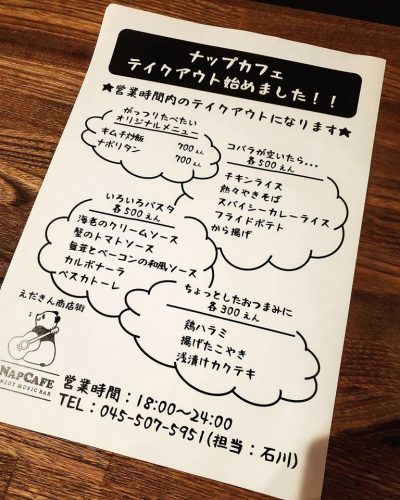 ナップカフェ
テイクアウト始めました！！
★営業時間内のテイクアウトになります★
がっつりたべたい
オリジナルメニュー
キムチ炒飯 700えん
ナポリタン 700えん
コバラが空いたら...
各500えん
チキンライス
熱々やきそば
スパイシーカレーライス
フライドポテト
から揚げ
いろいろパスタ
各500えん
海老のクリームソース
蟹のトマトソース
舞茸とベーコンの和風ソース
カルボナーラ
ペスカトーレ
ちょっとしたおつまみに
各300えん
鶏ハラミ
揚げたこやき
浅漬けカクテキ
えだきん商店街
NAPCAFE
ENJOY MUSIC BAR
営業時間：18:00〜24:00
TEL：045-507-5951(担当：石川)